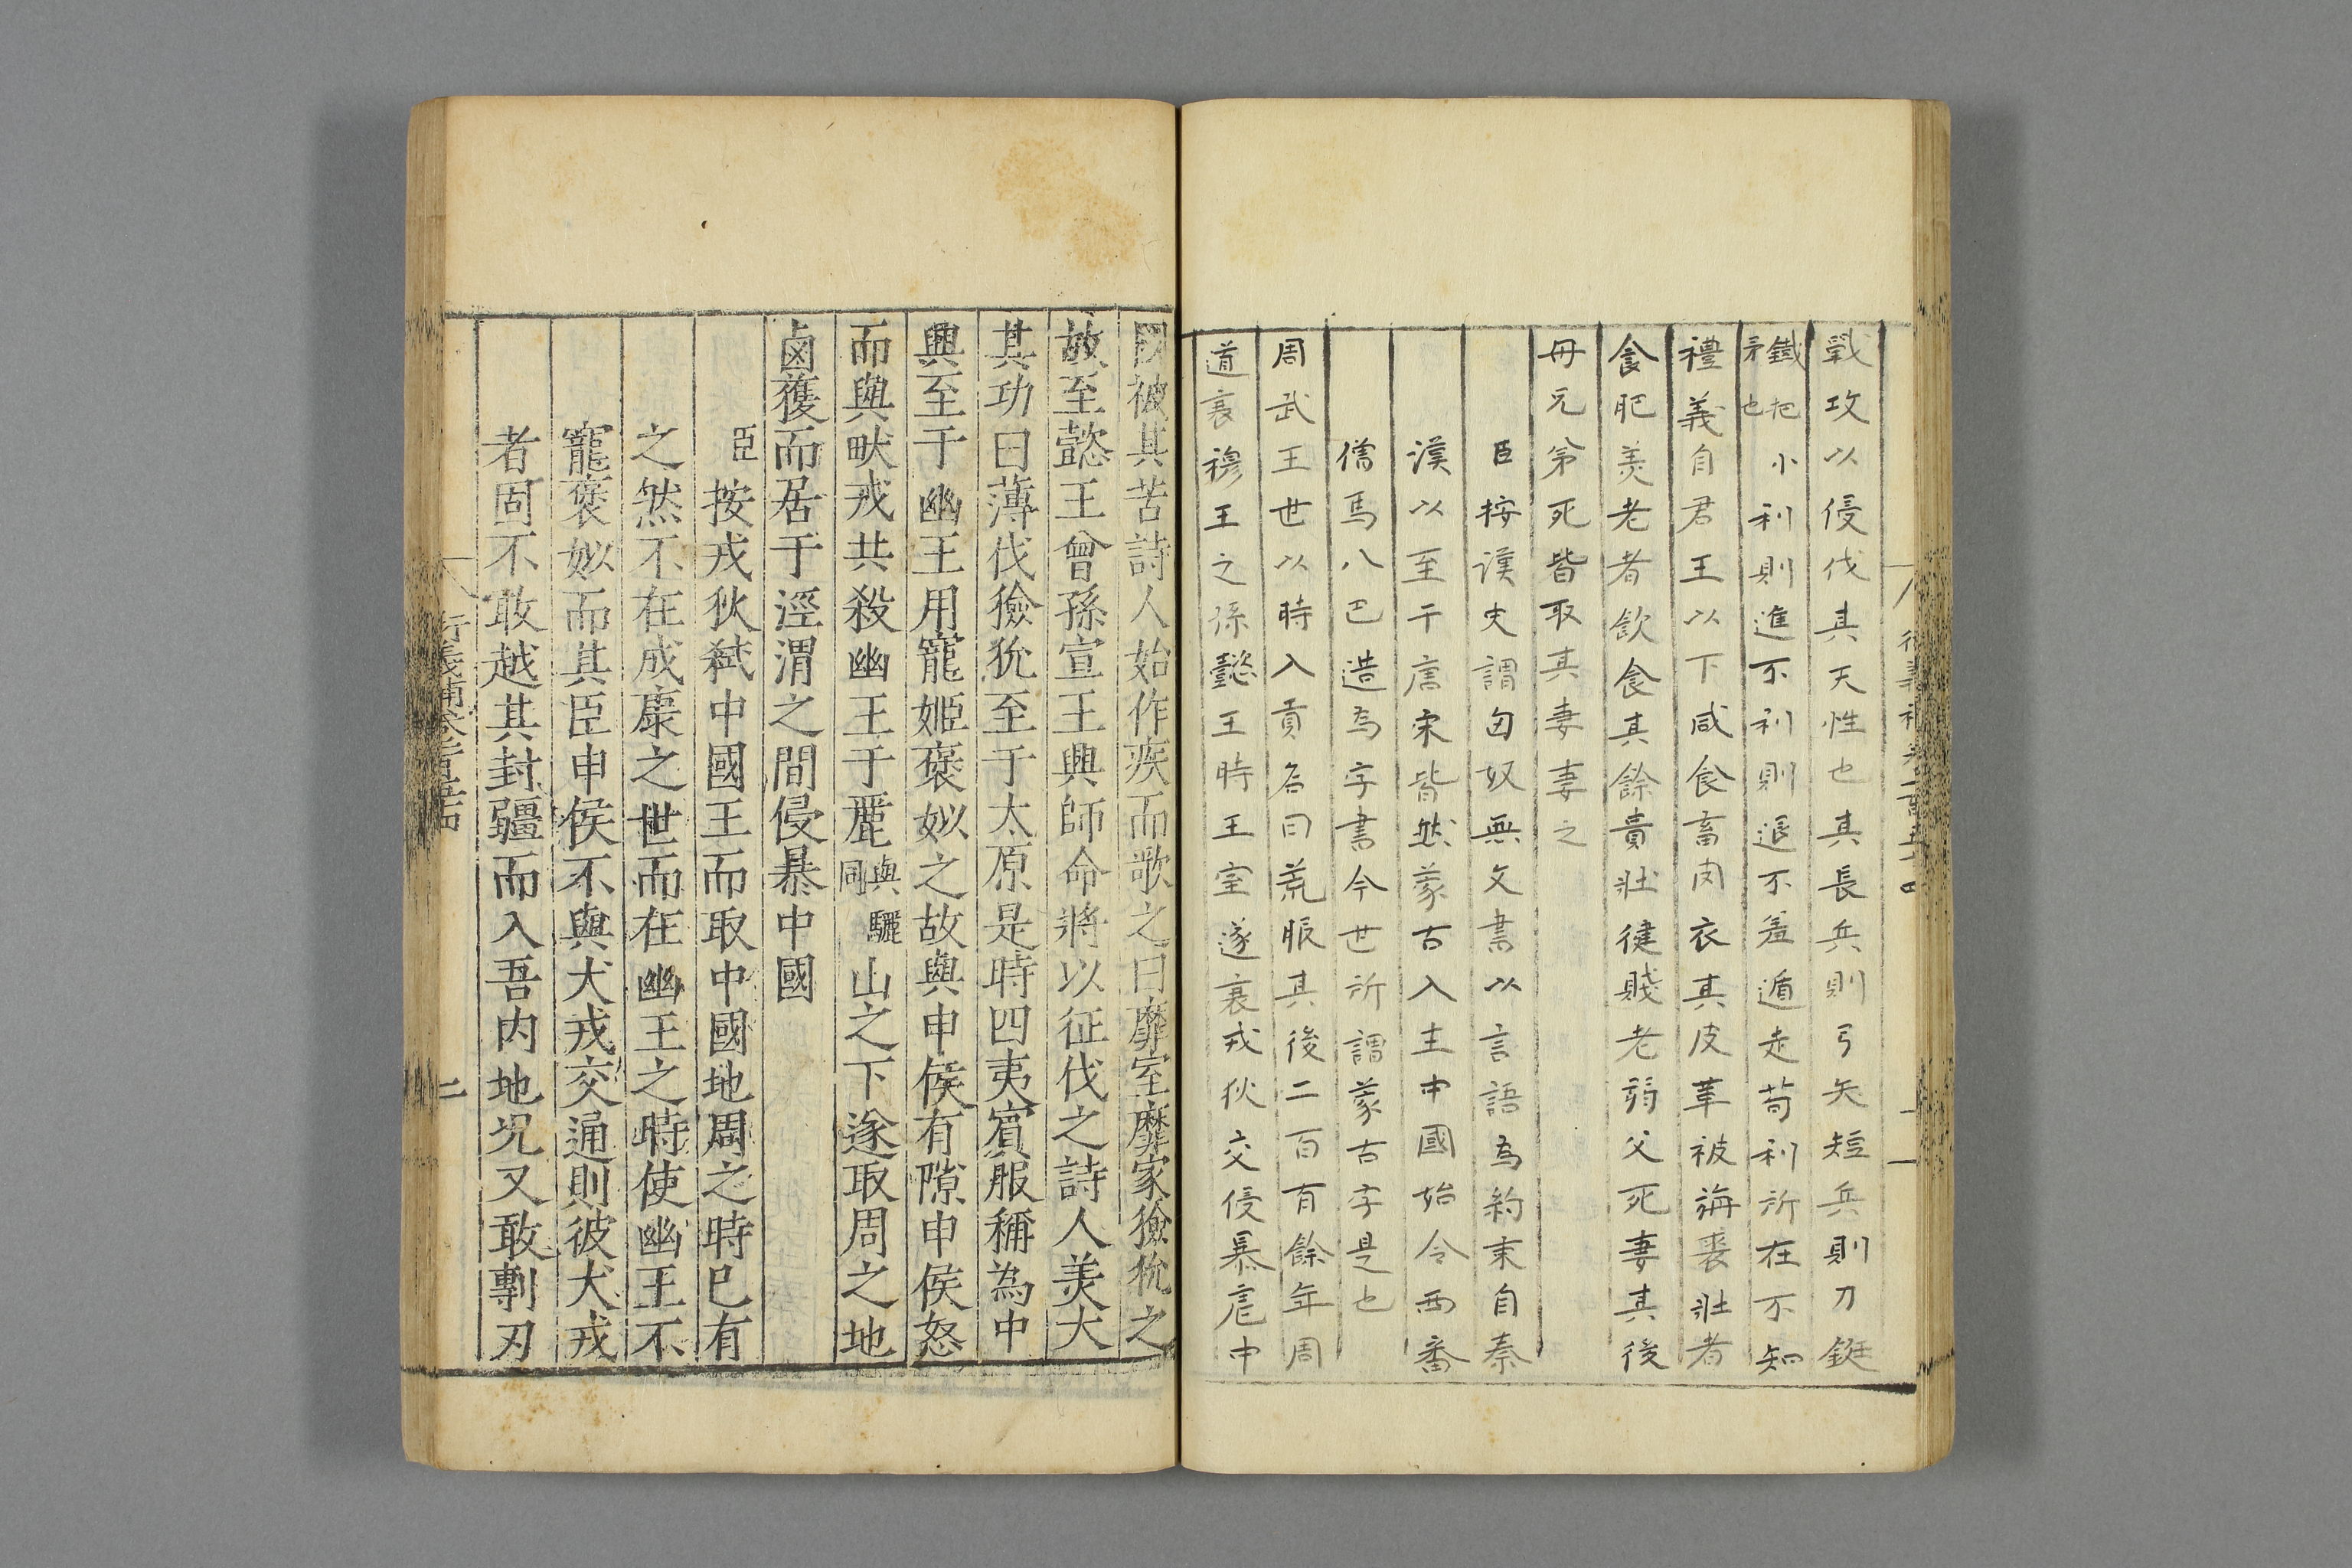 衍義補卷一百五十四
一
戰攻以侵伐其天性也其長兵則弓矢短兵則刀鋋
鐵把矛也小利則進不利則退不羞遁走苟利所在不知
禮義自君王以下咸食畜肉衣其皮革被旃裘壯者
食肥美老者飲食其餘貴壯健賤老弱父死妻其後
母兄弟死皆取其妻妻之
臣按漢史謂匈奴無文書以言語為約束自秦
漢以至于唐宋皆然蒙古入主中國始令西番
僧馬八巴造為字書今世所謂蒙古字是也
周武王世以時入貢名曰荒服其後二百有餘年周
道衰穆王之孫懿王時王室遂衰戎狄交侵暴虐中
國被其苦詩人始作疾而歌之曰靡室靡家獫狁之
故至懿王曾孫宣王興師命將以征伐之詩人美大
其功曰薄伐獫狁至于太原是時四夷賓服稱為中
興至于幽王用寵姬褒姒之故與申侯有隙申侯怒
而與畎戎共殺幽王于麗與驪同山之下遂取周之地
鹵獲而居于涇渭之間侵暴中國
臣按戎狄弒中國王而取中國地周之時已有
之然不在成康之世而在幽王之時使幽王不
寵褒姒而其臣申侯不與犬戎交通則彼犬戎
者固不敢越其封疆而入吾內地况又敢剚刃
衍義補卷一百五十四
二